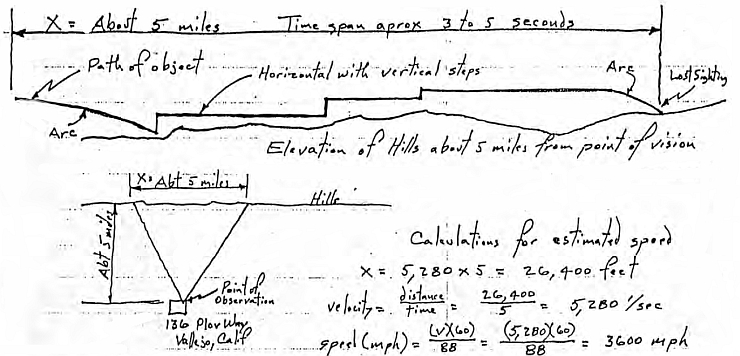 X = About 5 miles Time span aprox 3 to 5 seconds
Path of object
Horizontal with vertical steps
Arc
Lost Sighting
Arc
Elevation of Hills about 5 miles from point of vision
X= Abt 5 miles
Hills
Abt 5 miles
Point of
Observation
136 Plov Way
Vallejo, Calif
Calculations for estimated speed
X = 5,280 x 5 = 26,400 feet
velocity = distance/time = 26,400/5 = 5,280 '/sec
speed (mph) = (v)(60)/88 = (5,280)(60)/88 = 3600 mph